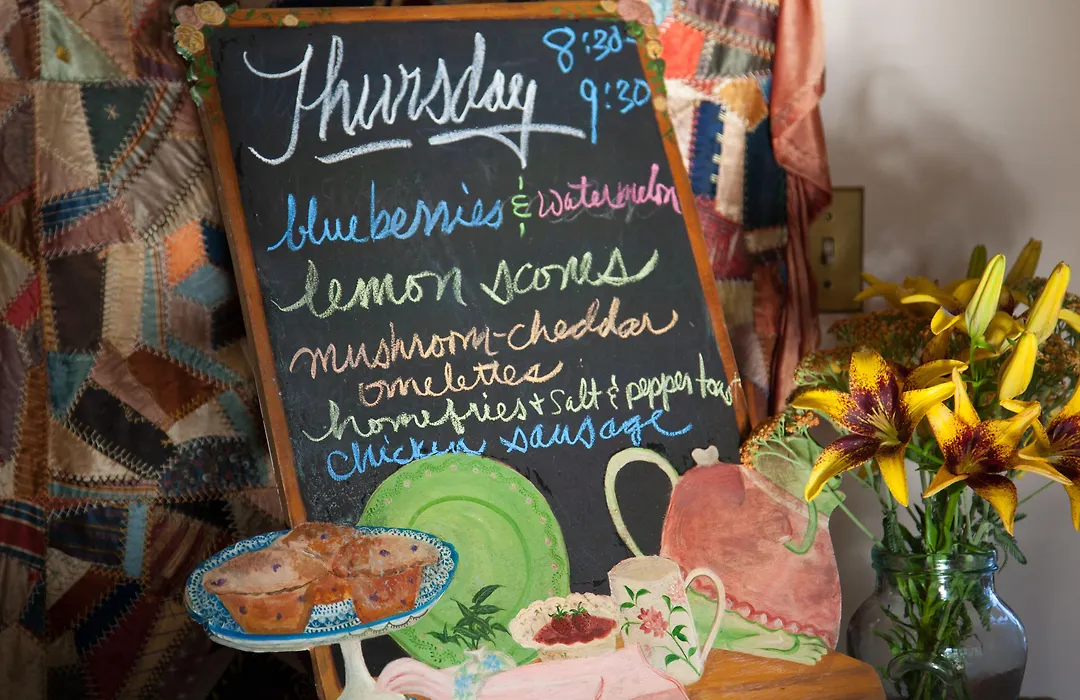 Thursday 8:30-
9:30
blueberries & watermelon
lemon scones
mushroom-cheddar
omelettes
homefries + salt & pepper toast
chicken sausage